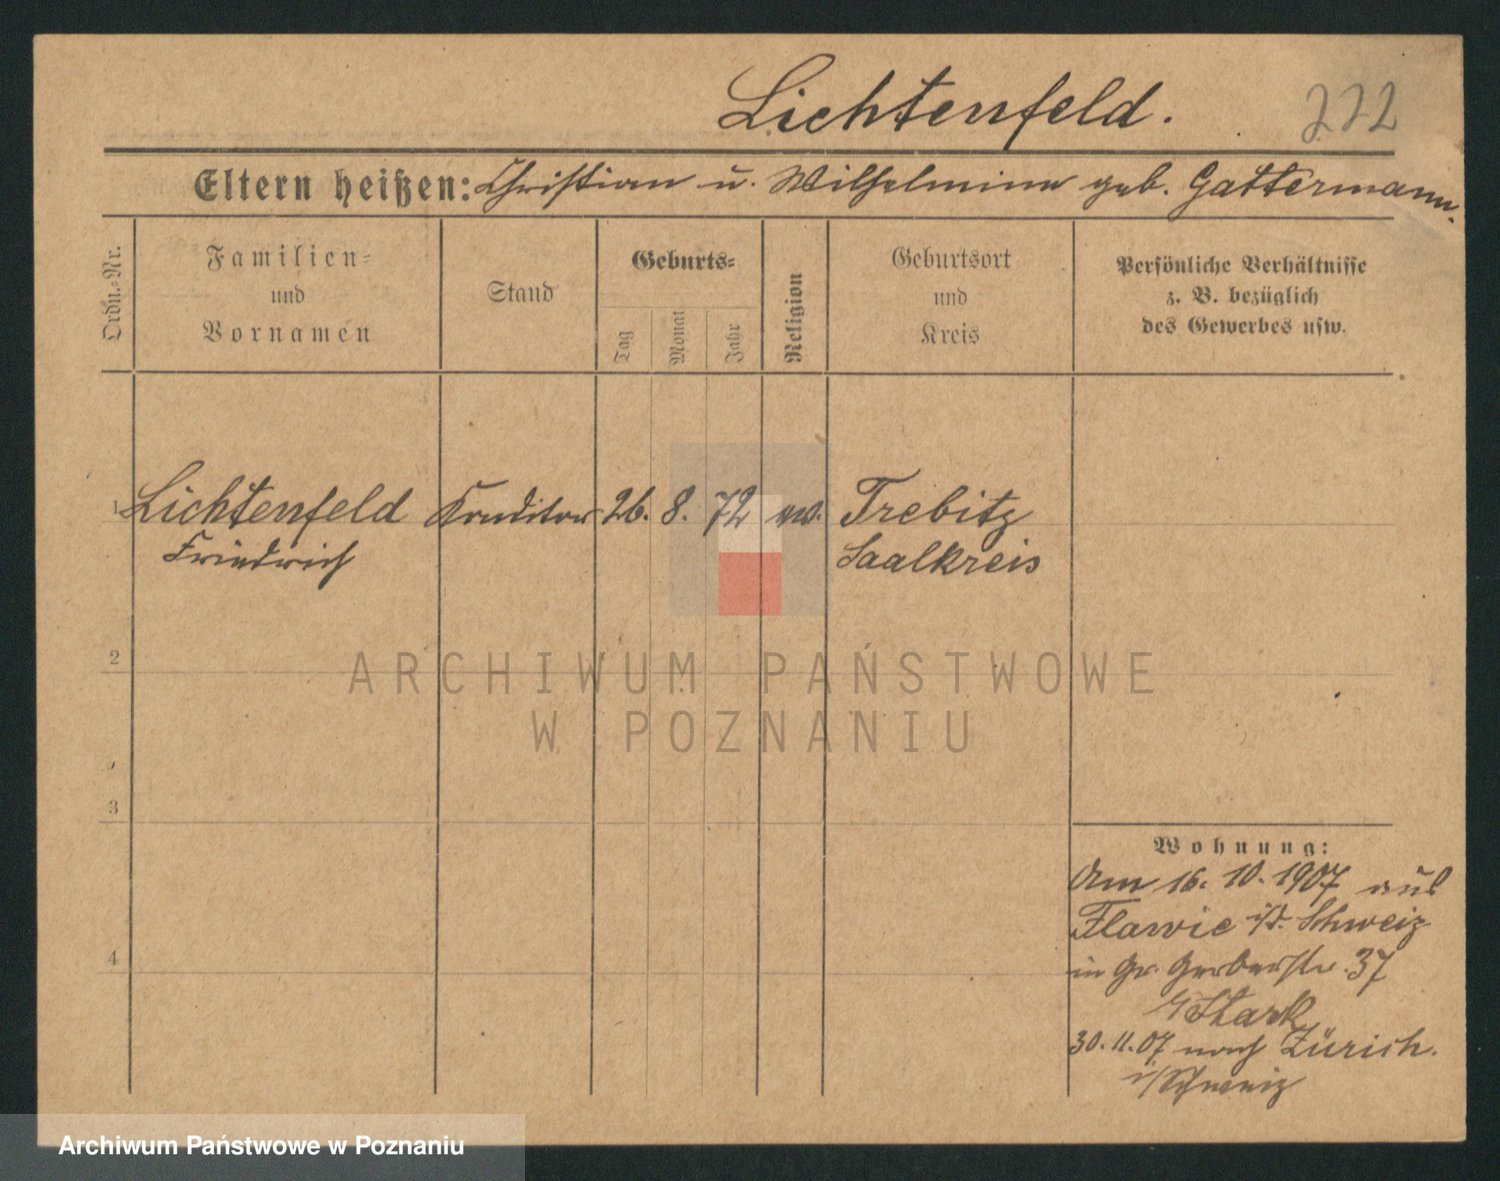 Lichtenfeld.
222
Eltern heißen: Christian u. Wilhelmine geb. Gattermann.
Ordn.-Nr.
Familien-
und
Vornamen
Stand
Geburts-
Tag
Monat
Jahr
Religion
Geburtsort
und
Kreis
Persönliche Verhältnisse
z. B. bezüglich
des Gewerbes usw.
1 Lichtenfeld Konditor 26. 8. 72 ev. Trebitz
Friedrich Saalkreis
2
ARCHIWUM PAŃSTWOWE
W POZNANIU
3
Wohnung:
Am 16. 10. 1907 aus
Flawie i/d. Schweiz
4
in Gr. Gerberstr. 37
Stark
30. 11. 07 nach Zürich.
i/Schweiz
Archiwum Państwowe w Poznaniu